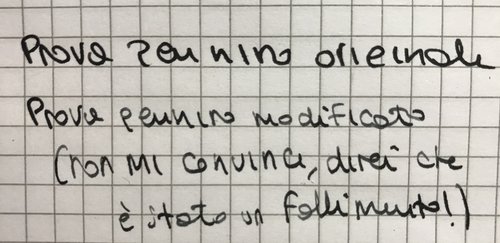 Prova pennino originale
Prova pennino modificato
(non mi convince, direi che
è stato un fallimento!)